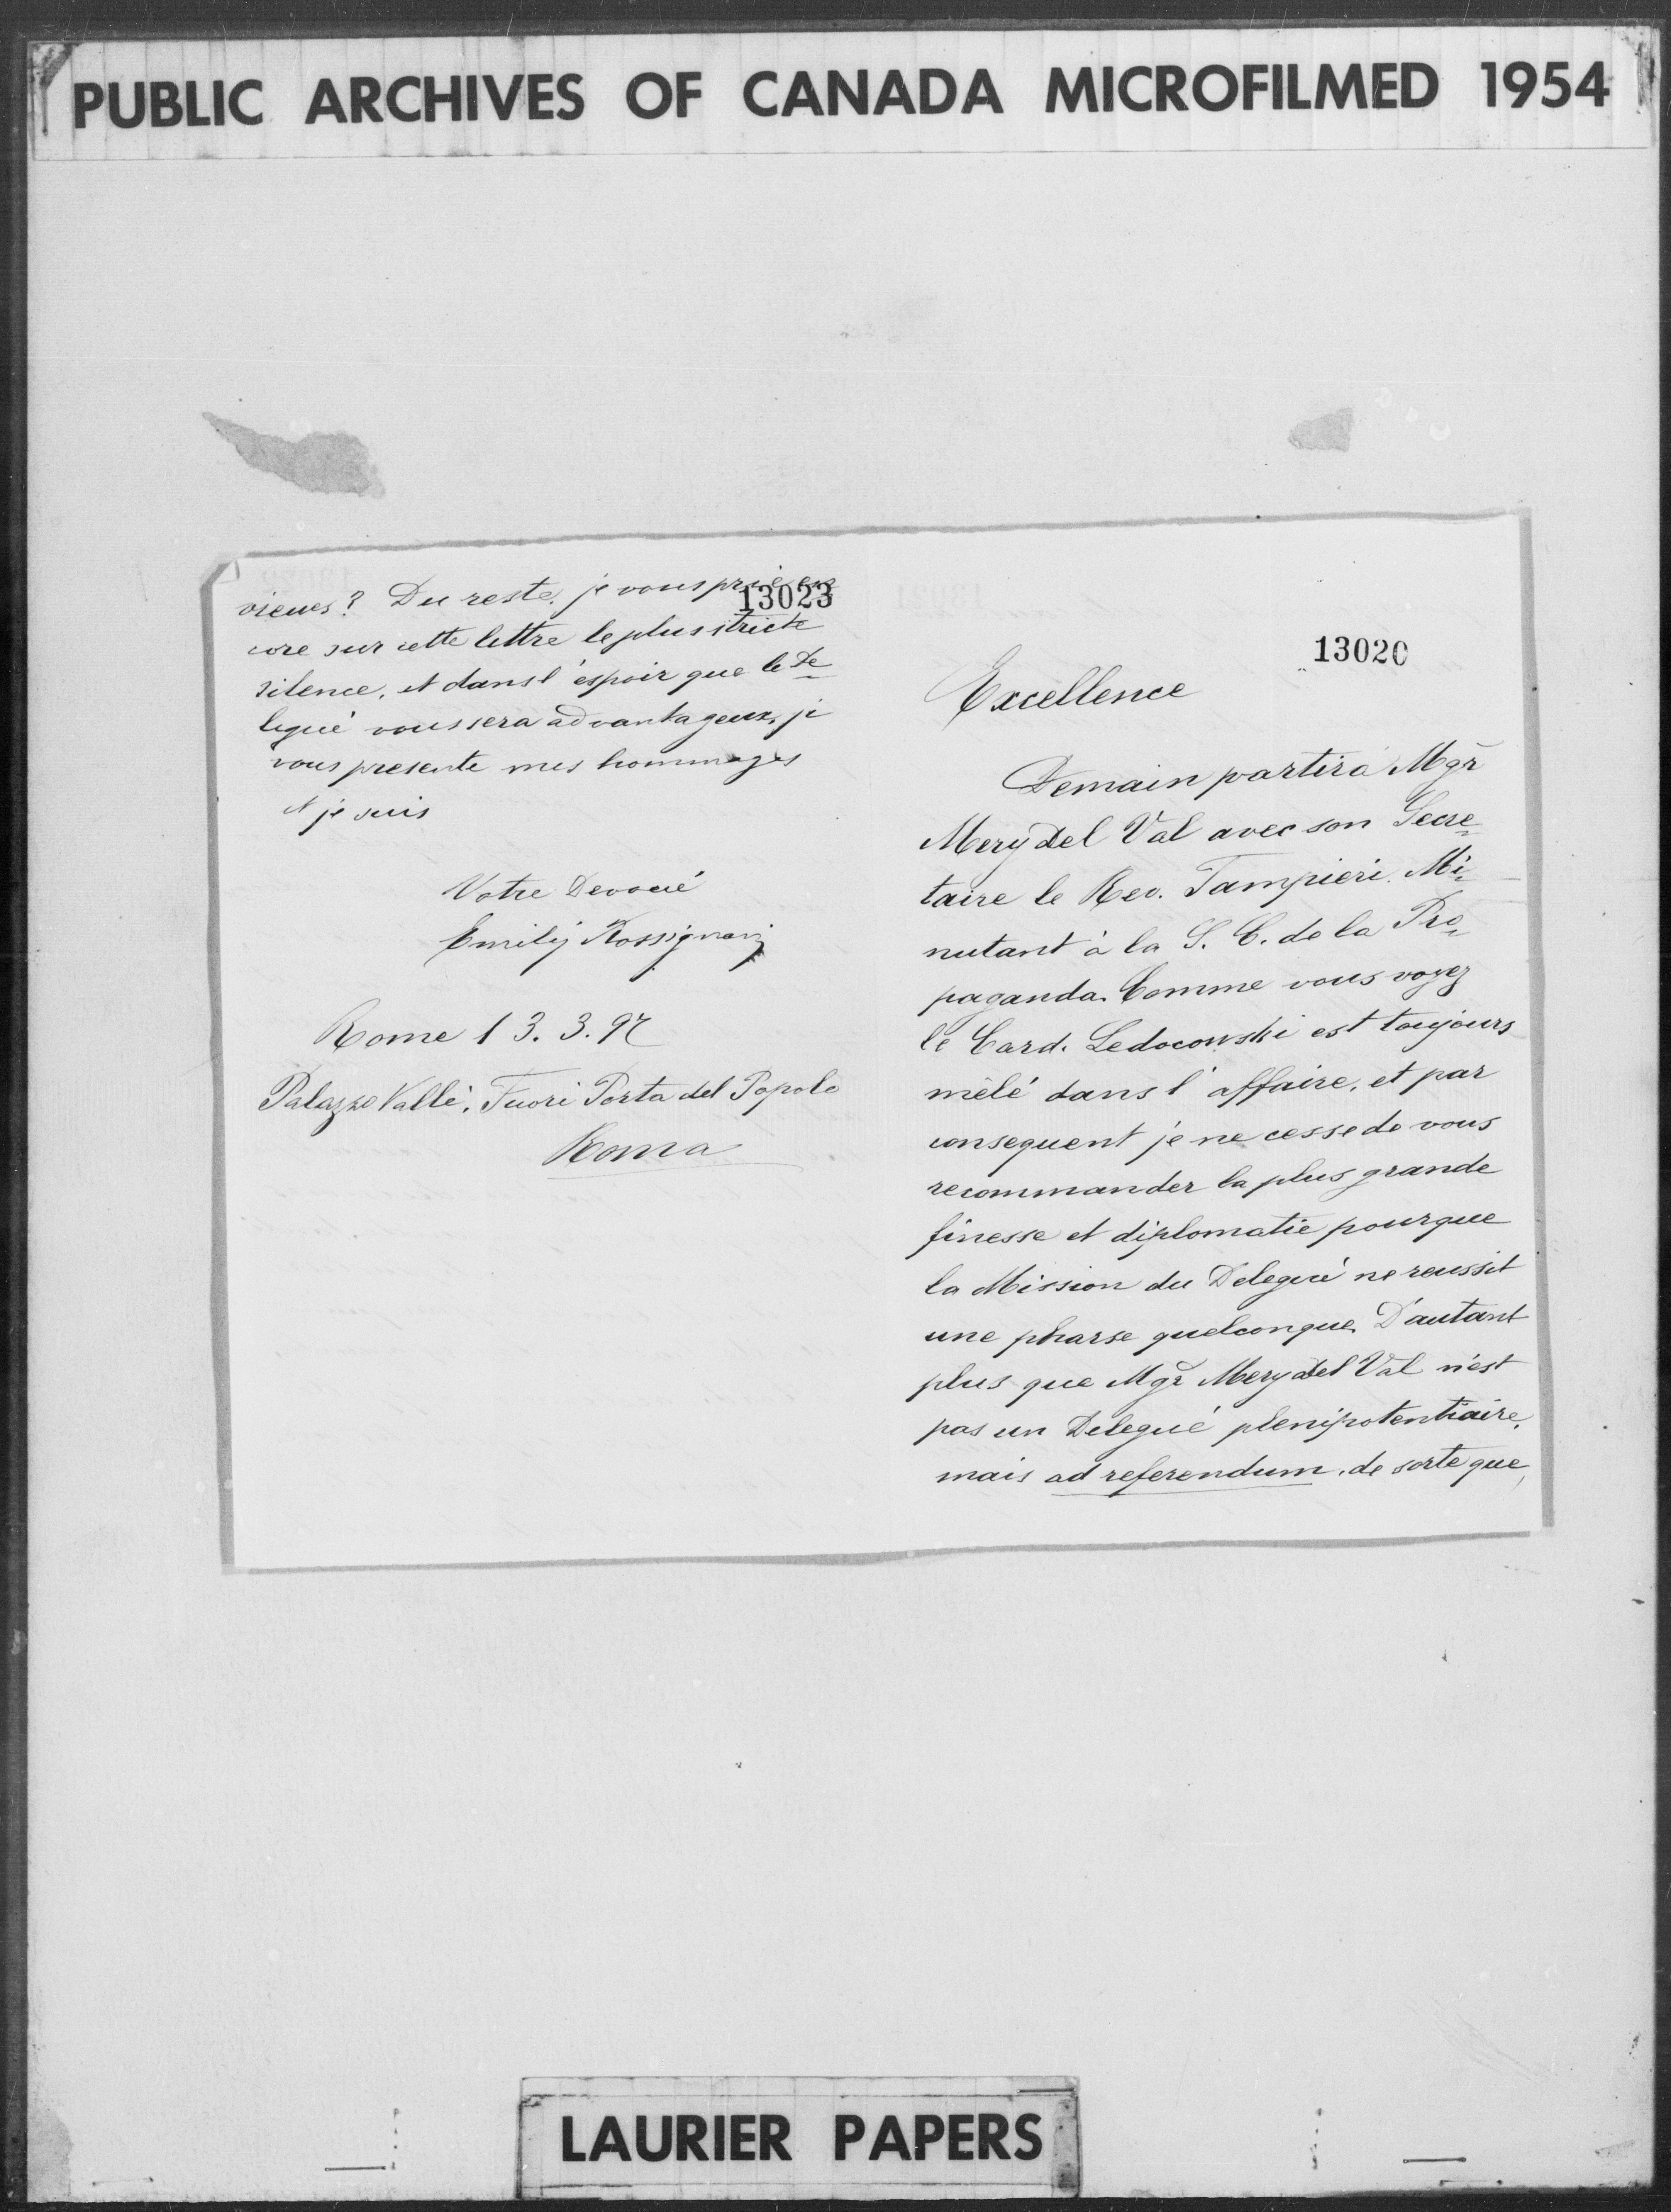 PUBLIC ARCHIVES OF CANADA MICROFILMED 1954
13023
vieues? Du reste, je vous prie en
core sur cette lettre le plus stricte
silence, et dans l'éspoir que le De
legué vous sera advantageux, je
vous presente mes hommages
et je suis
Votre Devoué
Emilij Rossignani
Rome 13. 3. 97
Palazzo Valli, Fuori Porta del Popolo
Roma
13020
Excellence
Demain partira Mgr
Mery del Val avec son Secre
taire le Rev. Tampieri Mi
nutant à la S. C. de la Pro
paganda. Comme vous voyez
le Card. Ledocowski est toujours
mêlé dans l'affaire, et par
consequent je ne cesse de vous
recommander la plus grande
finesse et diplomatie pourque
la Mission du Delegué ne reussit
une pharse quelconque. D'autant
plus que Mgr Mery del Val n'est
pas un Delegué plenipotentiaire,
mais ad referendum, de sorte que,
LAURIER PAPERS